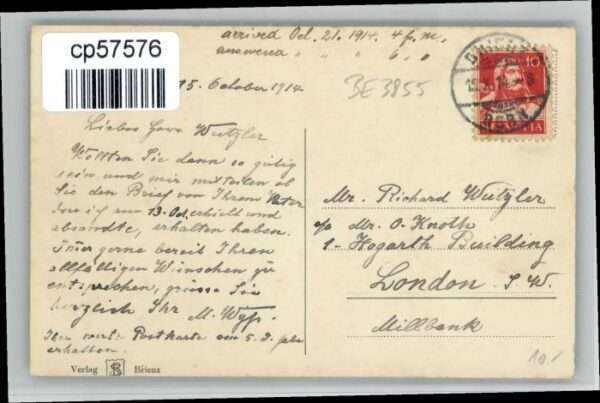 cp57576
arrived Oct. 21. 1914. 4 p.m,
answered " " " 6 "
BE3855
15. October 1914
BRIENZ
10
BERN
HELVETIA
Lieber Herr Wutzler
Wollten Sie denn so gütig
sein und mir mitteilen ob
Sie den Brief von Ihrem Vater
den ich am 13. Oct. erhielt und
absandte, erhalten haben.
Immer gerne bereit Ihren
allfälligen Wünschen zu
entsprechen, grüsse Sie
herzlich Ihr M. Wyss.
Ihre werte Postkarte vom 5. J.
erhalten.
Mr. Richard Wutzler
c/o Mr. O. Knoth
1 - Hogarth Building
London. S. W.
Millbank
10/
Verlag SB Brienz